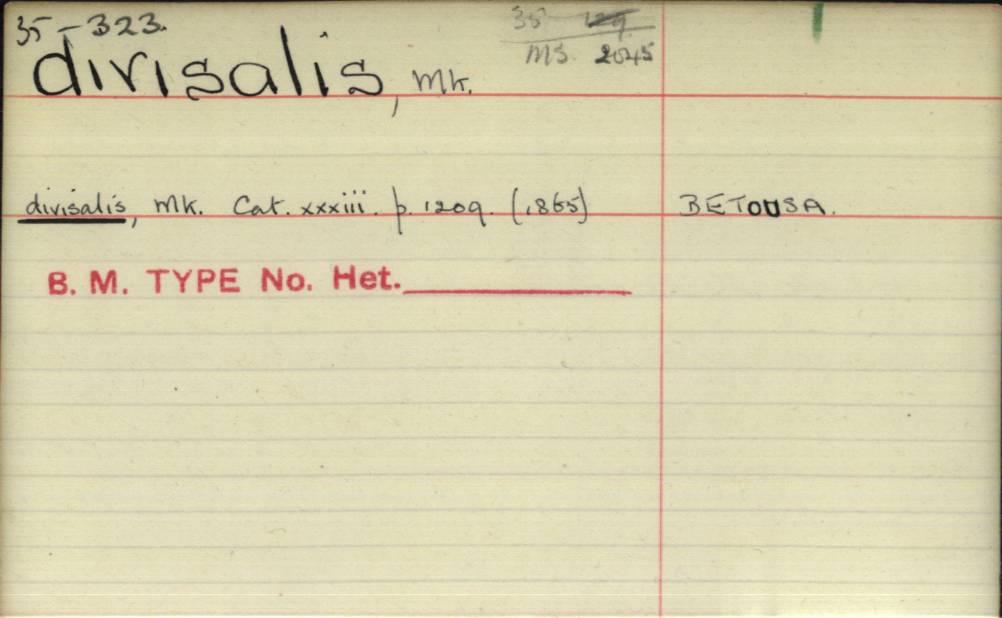 35-323.
35 129.
MS. 2045
divisalis, Mk.
divisalis, Mk. Cat. xxxiii. p. 1209. (1865) BETOUSA.
B. M. TYPE No. Het.